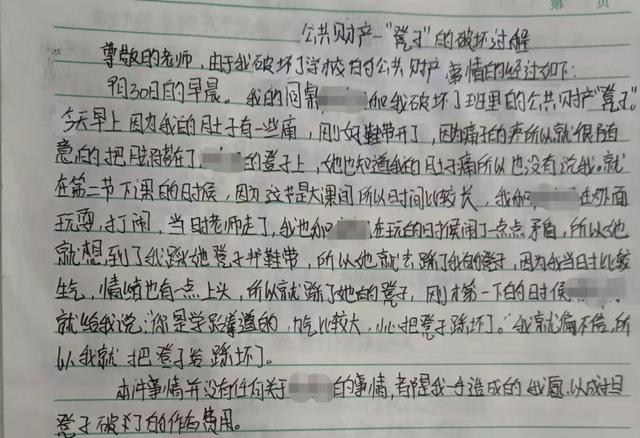 第 页
公共财产-"凳子"的破坏过程
尊敬的老师,由于我破坏了学校的公共财产,事情的经过如下:
9月30日的早晨。我的同桌 和我破坏了班里的公共财产"凳子"。
今天早上因为我的肚子有一些痛,刚好鞋带开了,因为痛的 所以就很随
意的把脚 在了 的凳子上,她也知道我的肚子痛所以也没有说我。就
在第二节下课的时候,因为这节是大课间所以时间比较长,我和 在外面
玩耍,打闹,当时老师走了,我也和 在玩的时候闹了一点点矛盾,所以她
就想到了我踩她凳子 鞋带,所以她就去踩了我的凳子,因为我当时比较
生气,情绪也有一点上头,所以就踩了她的凳子,刚才第一下的时候
就给我说:你是学跆拳道的,力气比较大,小心把凳子踩坏了。"我就偏不信,所
以我就把凳子给踩坏了。
本件事情并没有任何关于 的事情,都是我一手造成的我愿以成担
凳子破坏了的所有费用。